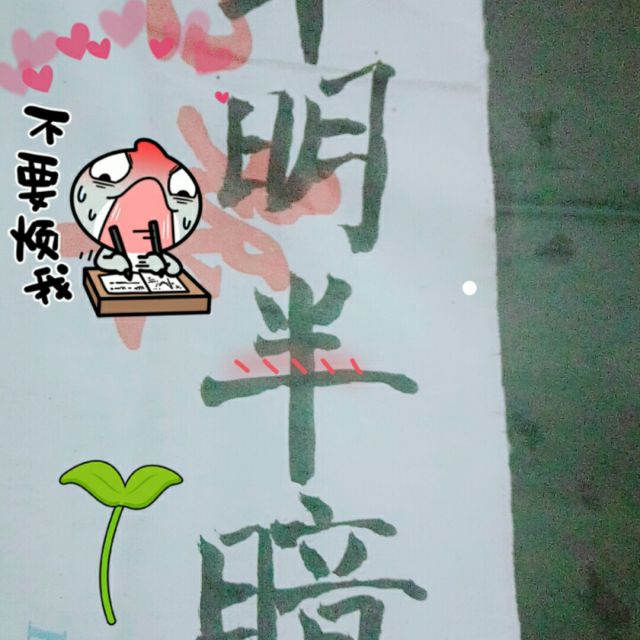 明半暗
不要烦我